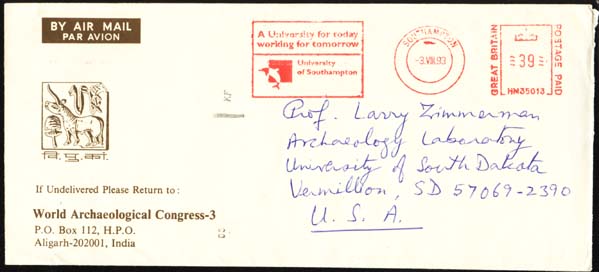 BY AIR MAIL
PAR AVION
A University for today
working for tomorrow
University
of Southampton
SOUTHAMPTON
-3.VIII.93
GREAT BRITAIN
39
POSTAGE PAID
HM35013
KP
वि. पु. कां.
If Undelivered Please Return to :
World Archaeological Congress-3
P.O. Box 112, H.P.O.
Aligarh-202001, India
Prof. Larry Zimmerman
Archaeology Laboratory
University of South Dakota
Vermillion, SD 57069-2390
U. S. A.